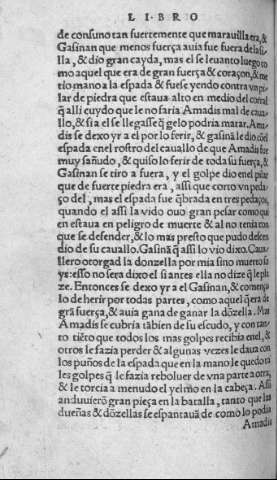 LIBRO
de consuno tan fuertemente que marauilla era, &
Gasinan que menos fuerça auia fue fuera de la si-
lla, & dio gran cayda, mas el se leuanto luego co
mo aquel que era de gran fuerça & coraçon, & me
tio mano a la espada & fuese yendo contra vn pi-
lar de piedra que estaua alto en medio del corral
q̃ alli cuydo que le no faria Amadis mal de caua-
llo, & si a el se llegasse q̃ gelo podria matar. Ama-
dis se dexo yr a el por lo ferir, & gasinã le dio cõel
espada enel rostro del cauallo de que Amadis fue
muy sañudo, & quiso lo ferir de toda su fuerça, &
Gasinan se tiro a fuera, y el golpe dio enel pilar
que de fuerte piedra era, assi que corto vn peda-
ço del, mas el espada fue q̃brada en tres pedaços,
quando el assi la vido ouo gran pesar como qui
en estaua en peligro de muerte & al no tenia con
que se defender, & lo mas presto que pudo decen
dio de su cauallo. Gasinã q̃ assi lo vio dixo. Caua-
llero otorgad la donzella por mia sino muerto so
ys: esso no sera dixo el si antes ella no dize q̃ le pla
ze. Entonces se dexo yr a el Gasinan, & começo
lo de herir por todas partes, como aquel q̃ era de
grã fuerça, & auia gana de ganar la dõzella. Mas
Amadis se cubria tãbien de su escudo, y con tan-
to tiẽto que todos los mas golpes recibia enel, &
otros le fazia perder & algunas vezes le daua con
los puños de la espada que en la mano le quedo ta
les golpes q̃ le fazia reboluer de vna parte a otra,
& le torcia a menudo el yelmo en la cabeça. Assi
anduuierõ gran pieça en la batalla, tanto que las
dueñas & dõzellas se espantauã de como lo podia
Amadis